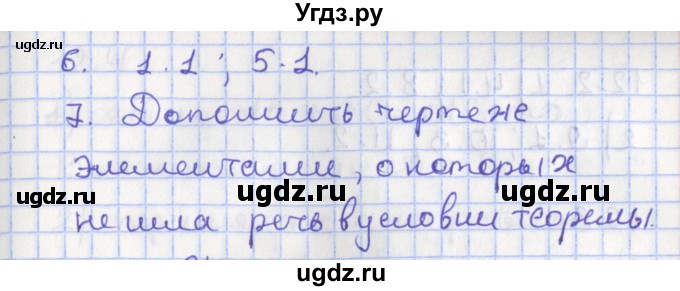 Угдз.ру
ugdz.ru ugdz.ru
6. 1.1; 5.1.
7. Дополнить чертеже
элементами, о которых
ugdz.ru ugdz.ru
не шла речь в условии теоремы.
ugdz.ru